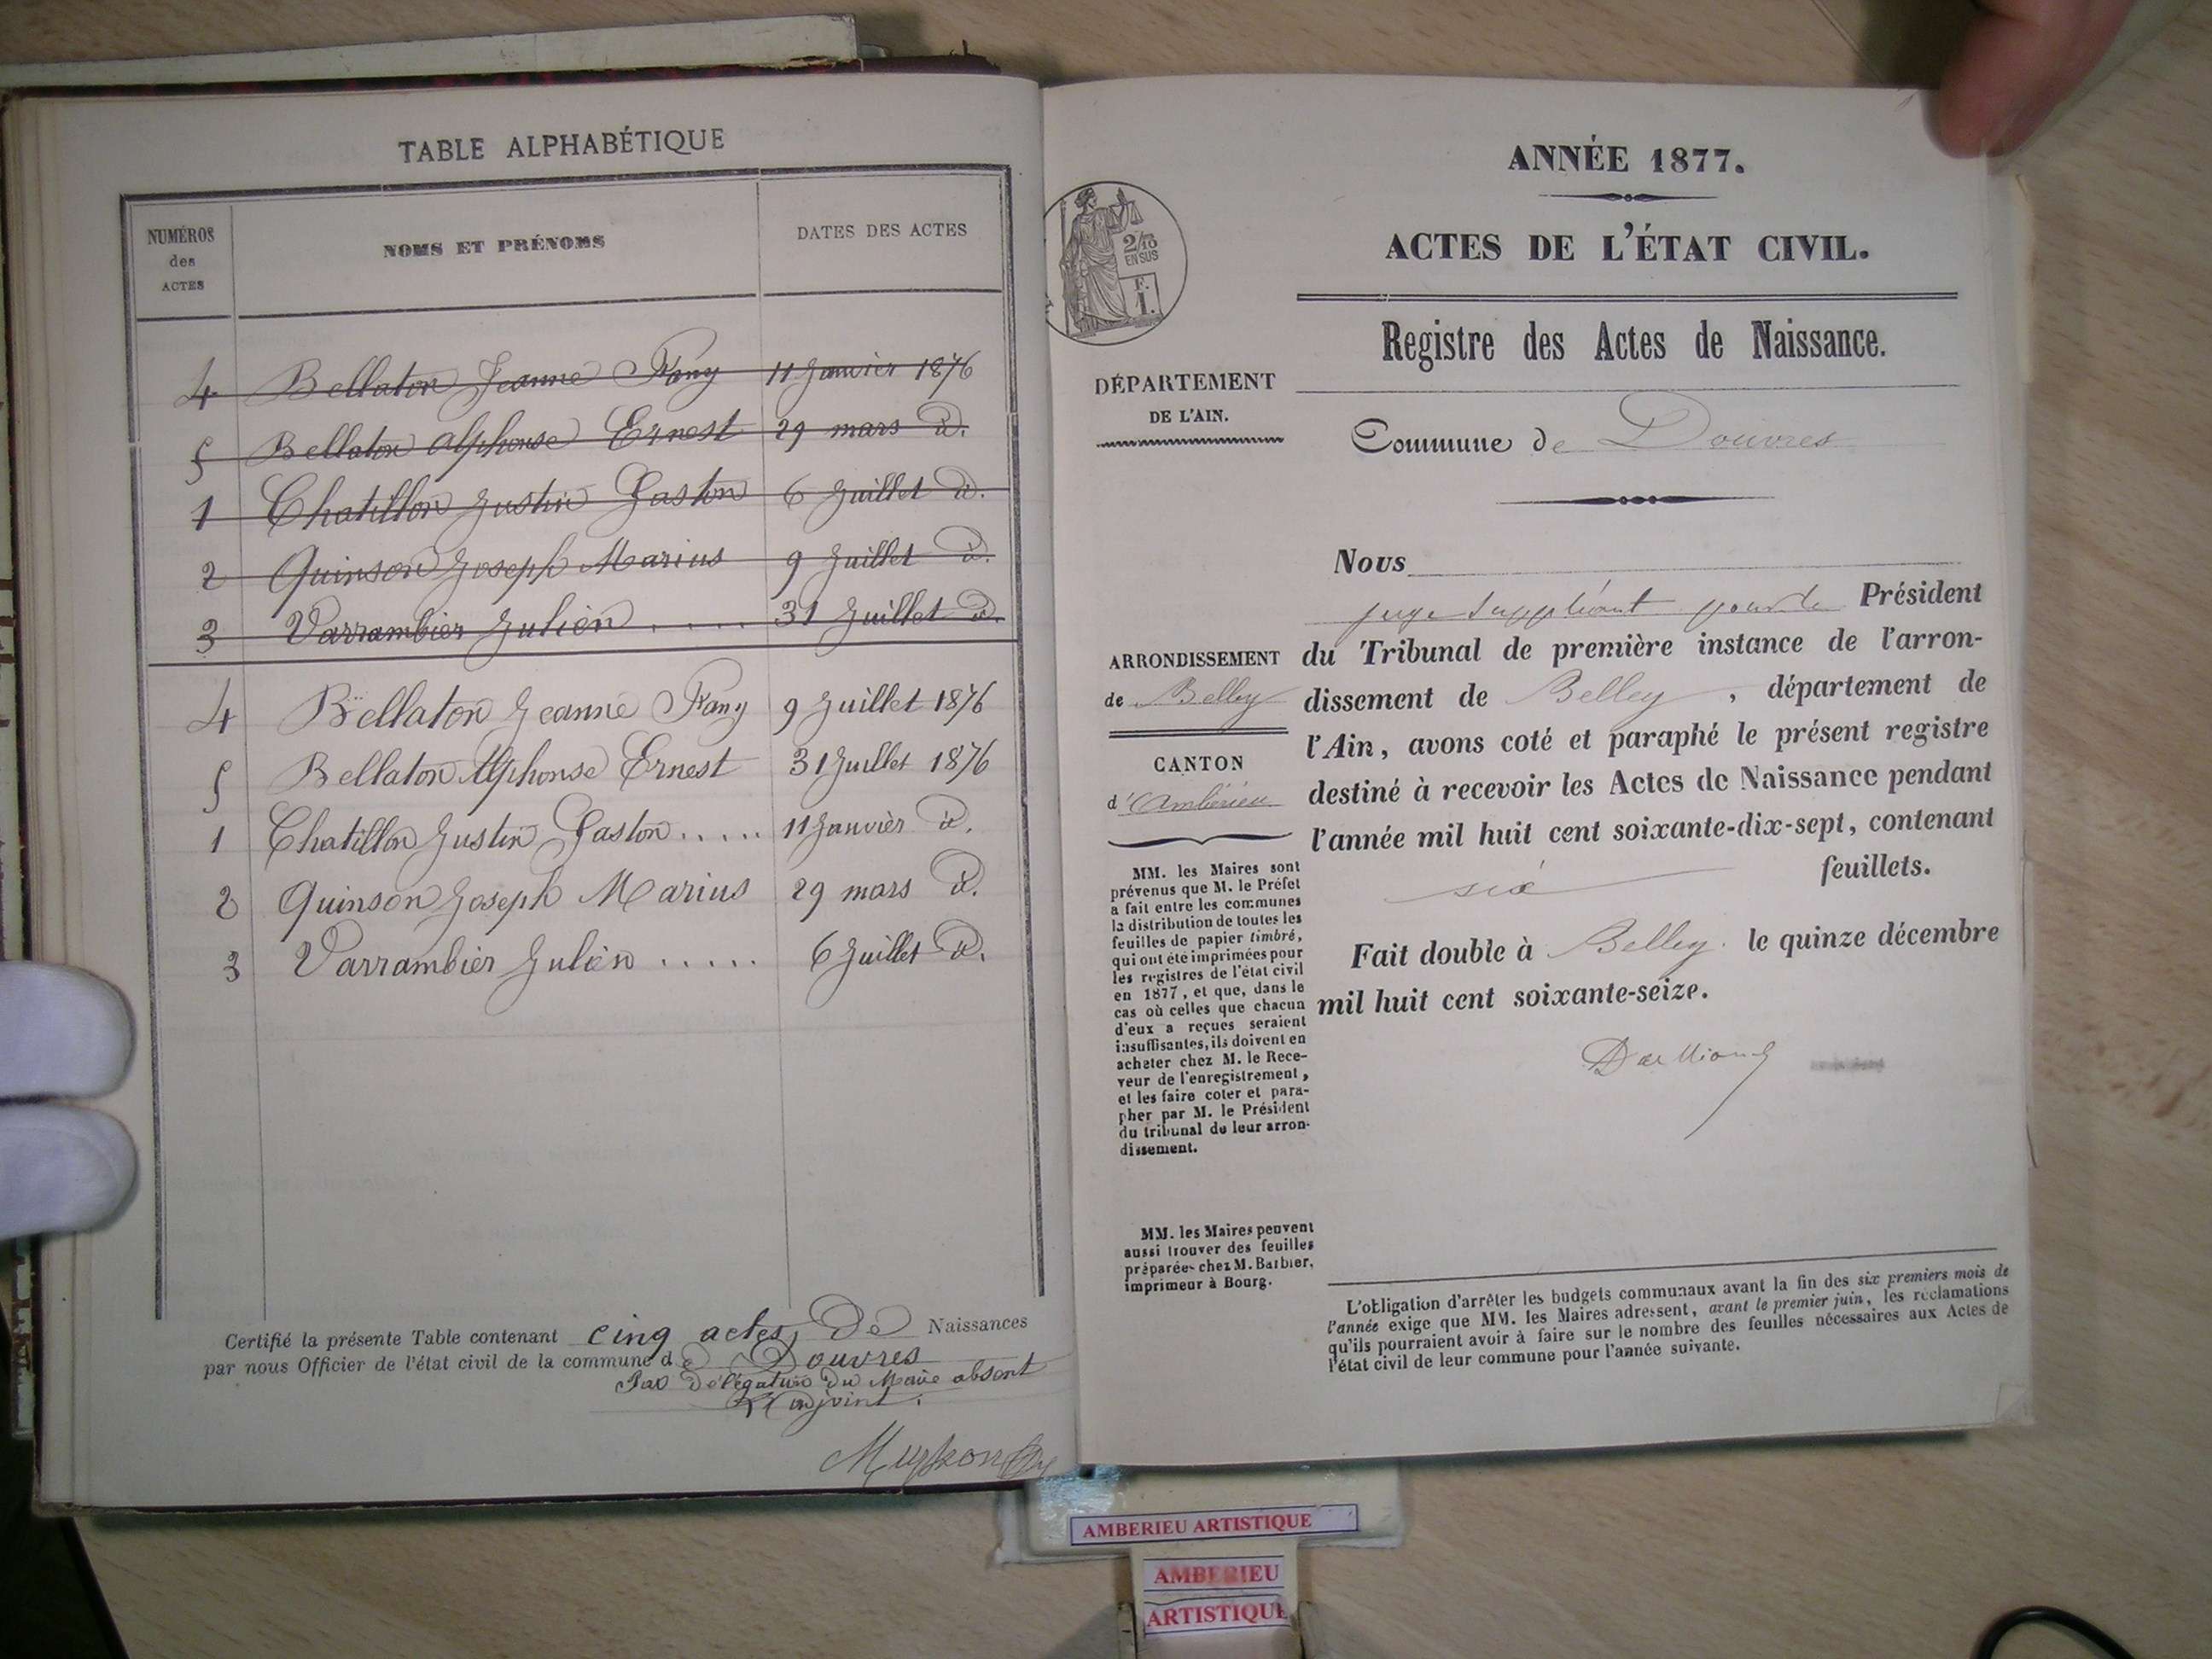 TABLE ALPHABÉTIQUE
NUMÉROS des ACTES NOMS ET PRÉNOMS DATES DES ACTES
4 Bellaton Jeanne Fany 11 Janvier 1876
5 Bellaton Alphonse Ernest 29 mars d.
1 Chatillon Justin Gaston 6 Juillet d.
2 Quinson Joseph Marius 9 Juillet d.
3 Varrambier Julien ..... 31 Juillet d.
4 Bellaton Jeanne Fany 9 Juillet 1876
5 Bellaton Alphonse Ernest 31 Juillet 1876
1 Chatillon Justin Gaston ..... 11 Janvier d.
2 Quinson Joseph Marius 29 mars d.
3 Varrambier Julien ..... 6 Juillet d.
Certifié la présente Table contenant cinq actes de Naissances
par nous Officier de l'état civil de la commune de Douvres
Par délégation du Maire absent
L'adjoint.
ANNÉE 1877.
ACTES DE L'ÉTAT CIVIL.
Registre des Actes de Naissance.
2/10
EN SUS
F.
1.
DÉPARTEMENT
DE L'AIN.
Commune de Douvres
Nous
juge suppléant pour le Président
du Tribunal de première instance de l'arron-
dissement de Belley, département de
l'Ain, avons coté et paraphé le présent registre
destiné à recevoir les Actes de Naissance pendant
l'année mil huit cent soixante-dix-sept, contenant
six feuillets.
Fait double à Belley. le quinze décembre
mil huit cent soixante-seize.
ARRONDISSEMENT
de Belley
CANTON
d'Ambérieu
MM. les Maires sont
prévenus que M. le Préfet
a fait entre les communes
la distribution de toutes les
feuilles de papier timbré,
qui ont été imprimées pour
les registres de l'état civil
en 1877, et que, dans le
cas où celles que chacun
d'eux a reçues seraient
insuffisantes, ils doivent en
acheter chez M. le Rece-
veur de l'enregistrement,
et les faire coter et para-
pher par M. le Président
du tribunal de leur arron-
dissement.
MM. les Maires peuvent
aussi trouver des feuilles
préparées chez M. Barbier,
imprimeur à Bourg.
L'obligation d'arrêter les budgets communaux avant la fin des six premiers mois de
l'année exige que MM. les Maires adressent, avant le premier juin, les réclamations
qu'ils pourraient avoir à faire sur le nombre des feuilles nécessaires aux Actes de
l'état civil de leur commune pour l'année suivante.
AMBERIEU ARTISTIQUE
AMBERIEU
ARTISTIQUE